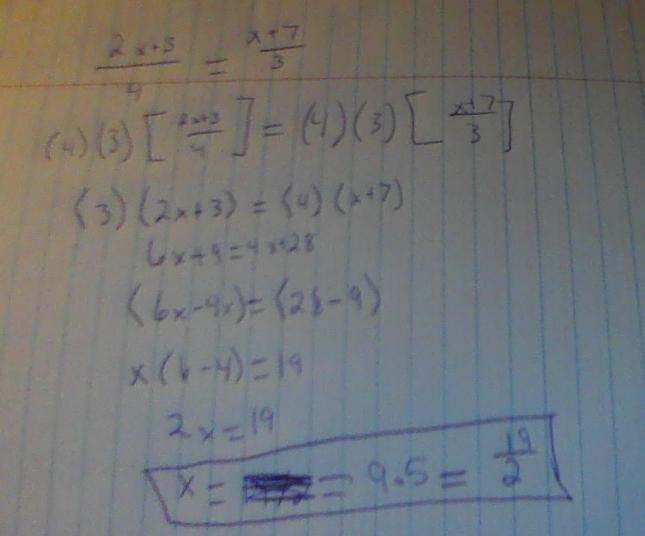 (2x+3)/4 = (x+7)/3
(4)(3)[(2x+3)/4] = (4)(3)[(x+7)/3]
(3)(2x+3) = (4)(x+7)
6x+9=4x+28
(6x-4x)=(28-9)
x(6-4)=19
2x=19
x= = 9.5 = 19/2